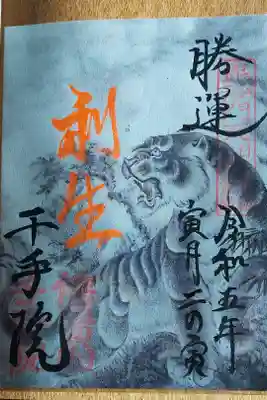 勝運
令和五年
寅月二の寅
利生
千手院